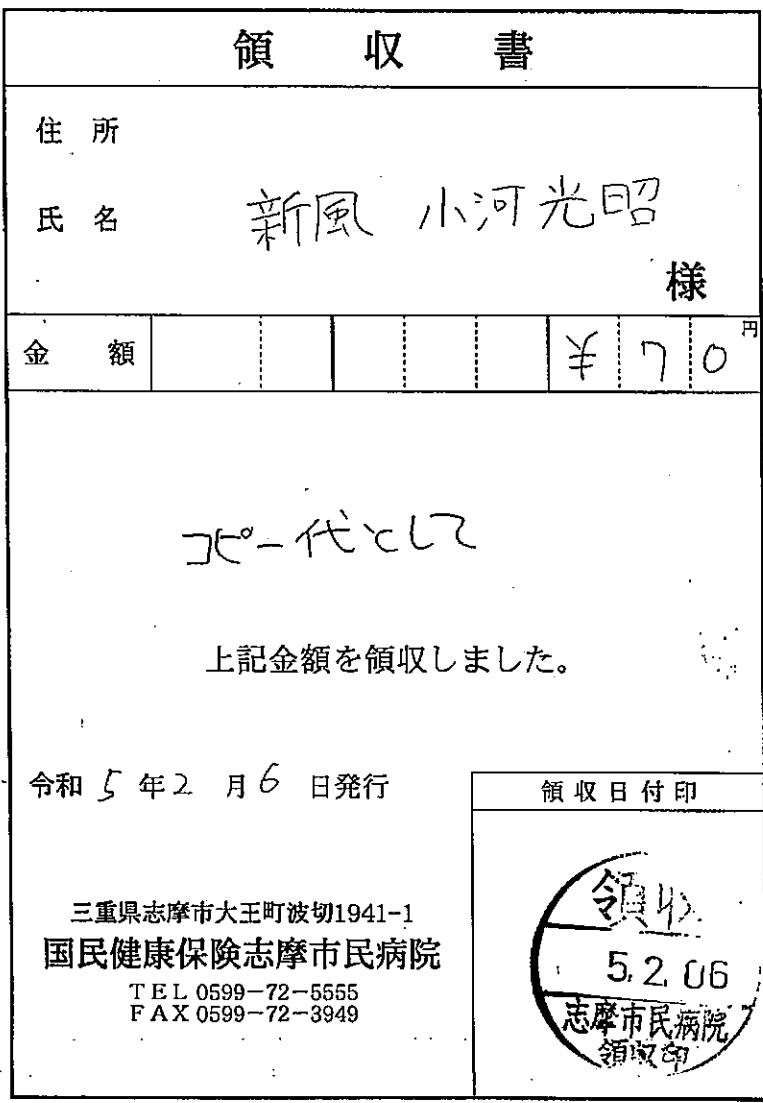 領収書
住所
氏名 新風 小河光昭
様
金額 ¥70円
コピー代として
上記金額を領収しました。
令和5年2月6日発行
領収日付印
三重県志摩市大王町波切1941-1
国民健康保険志摩市民病院
TEL 0599-72-5555
FAX 0599-72-3949
領収
5.2.06
志摩市民病院
領収印